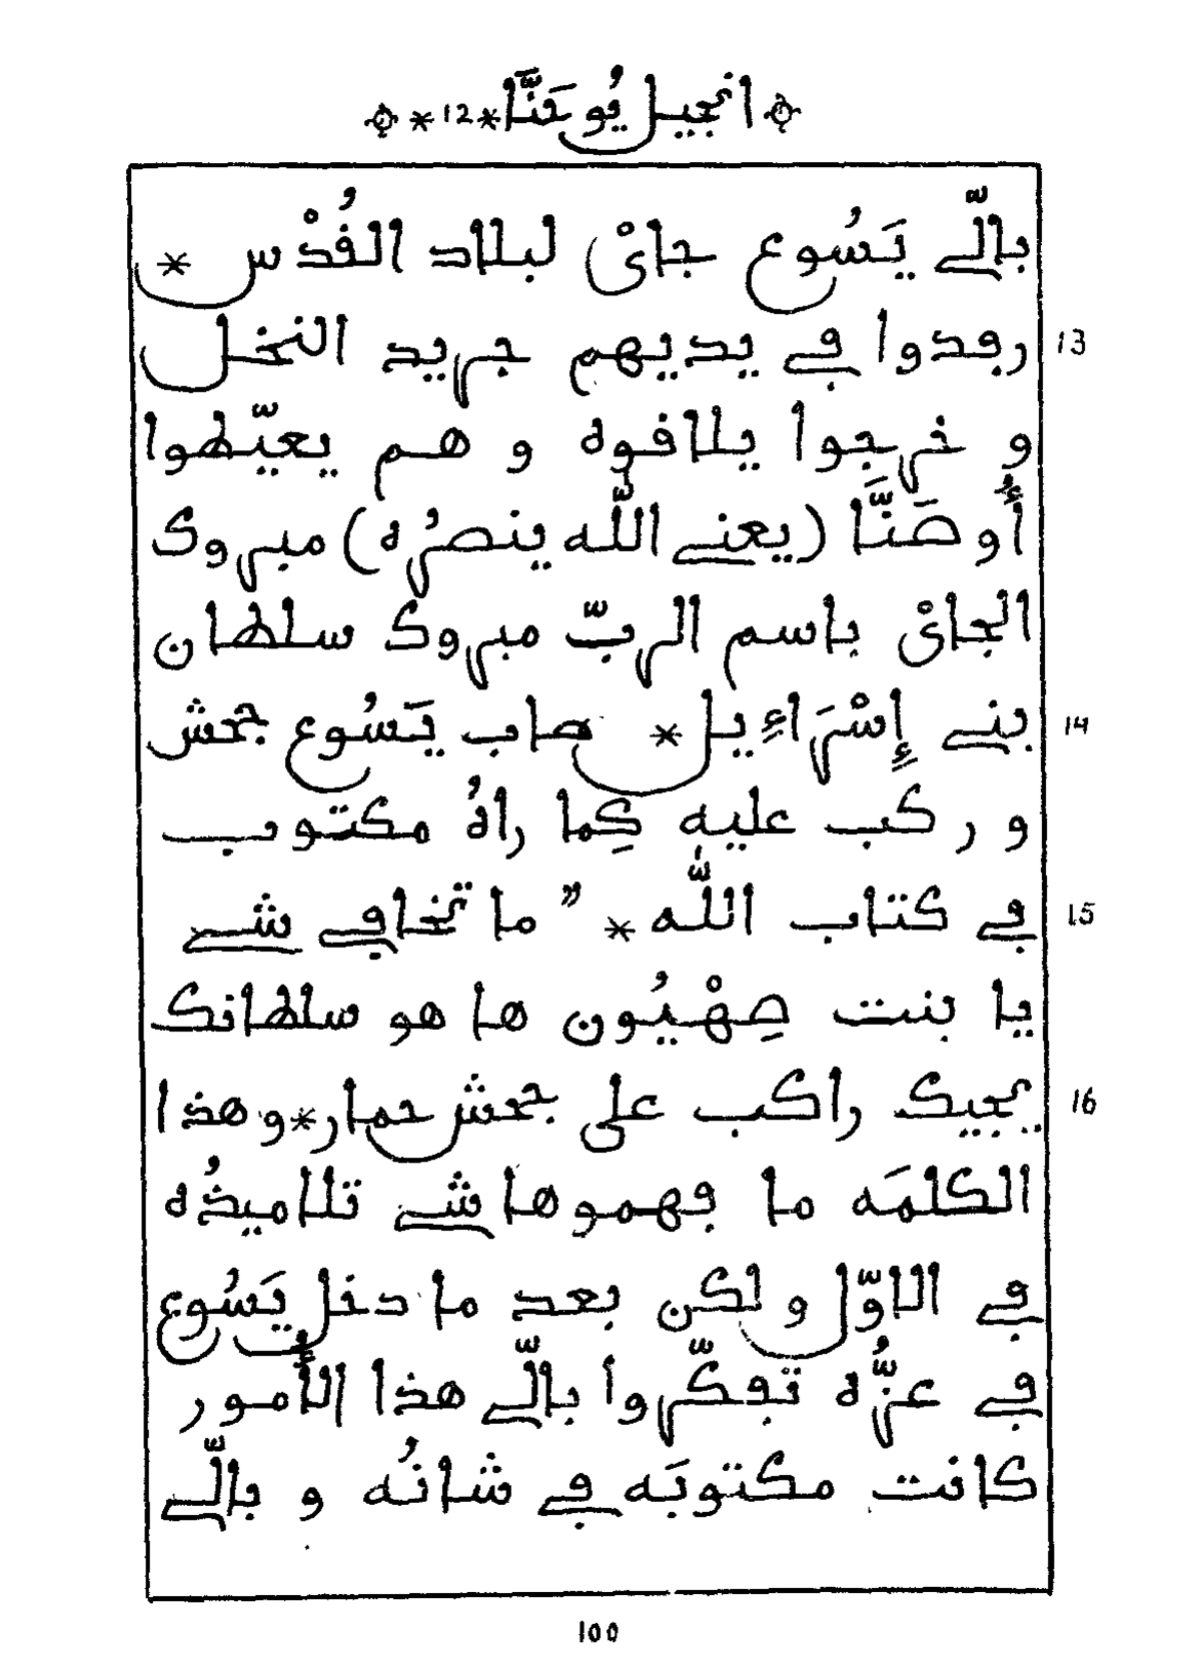 انجيل يُوحَنَّا * 12 *
بالّي يَسُوع جايْ لبلاد القُدْس *
13 رفدوا في يديهم جريد النخل
و خرجوا يلاقوه و هم يعيّطوا
أُوصَنَّا (يعني الله ينصرُه) مبروك
الجايْ باسم الربّ مبروك سلطان
14 بني إِسْرَاءِيل * صاب يَسُوع جحش
و ركب عليه كِما راهُ مكتوب
15 في كتاب الله * ” ما تخافي شي
يا بنت صِهْيُون ها هو سلطانك
16 يجيك راكب على جحش حمار * و هذا
الكلمَه ما فهموها شي تلاميذُه
في الاوّل و لكن بعد ما دخل يَسُوع
في عزُّه تفكّروا بالّي هذا الأُمور
كانت مكتوبَه في شانُه و بالّي
100